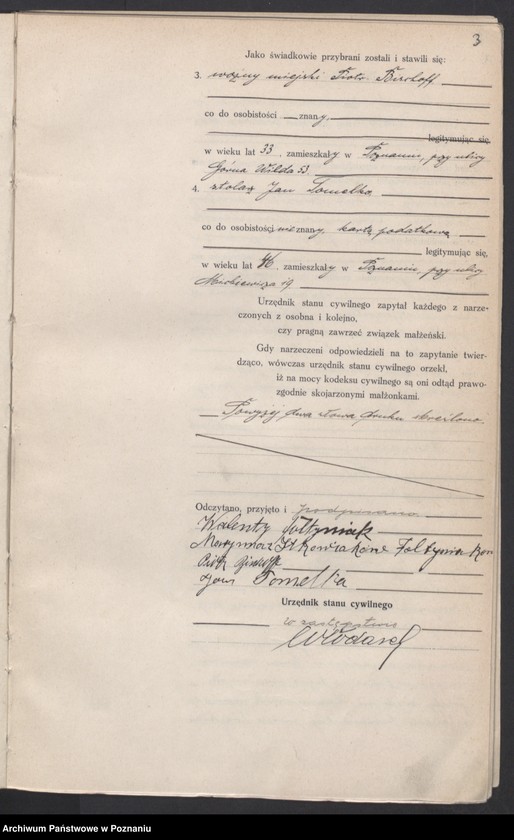 3
Jako świadkowie przybrani zostali i stawili się:
3. woźny miejski Piotr Bischoff
co do osobistości znany,
legitymując się
w wieku lat 33, zamieszkały w Poznaniu, przy ulicy
Górna Wilda 53.
4. stolarz Jan Tomelka
co do osobistości nieznany, kartą podatkową
legitymując się,
w wieku lat 46, zamieszkały w Poznaniu, przy ulicy
Mickiewicza 19
Urzędnik stanu cywilnego zapytał każdego z narze-
czonych z osobna i kolejno,
czy pragną zawrzeć związek małżeński.
Gdy narzeczeni odpowiedzieli na to zapytanie twier-
dząco, wówczas urzędnik stanu cywilnego orzekł,
iż na mocy kodeksu cywilnego są oni odtąd prawo-
zgodnie skojarzonymi małżonkami.
Powyżej dwa słowa druku skreślono.
Odczytano, przyjęto i podpisano
Walenty Sołtyniak
Piotr Bischoff
Jan Tomelka
Urzędnik stanu cywilnego
w zastępstwie
Włodarek
Archiwum Państwowe w Poznaniu